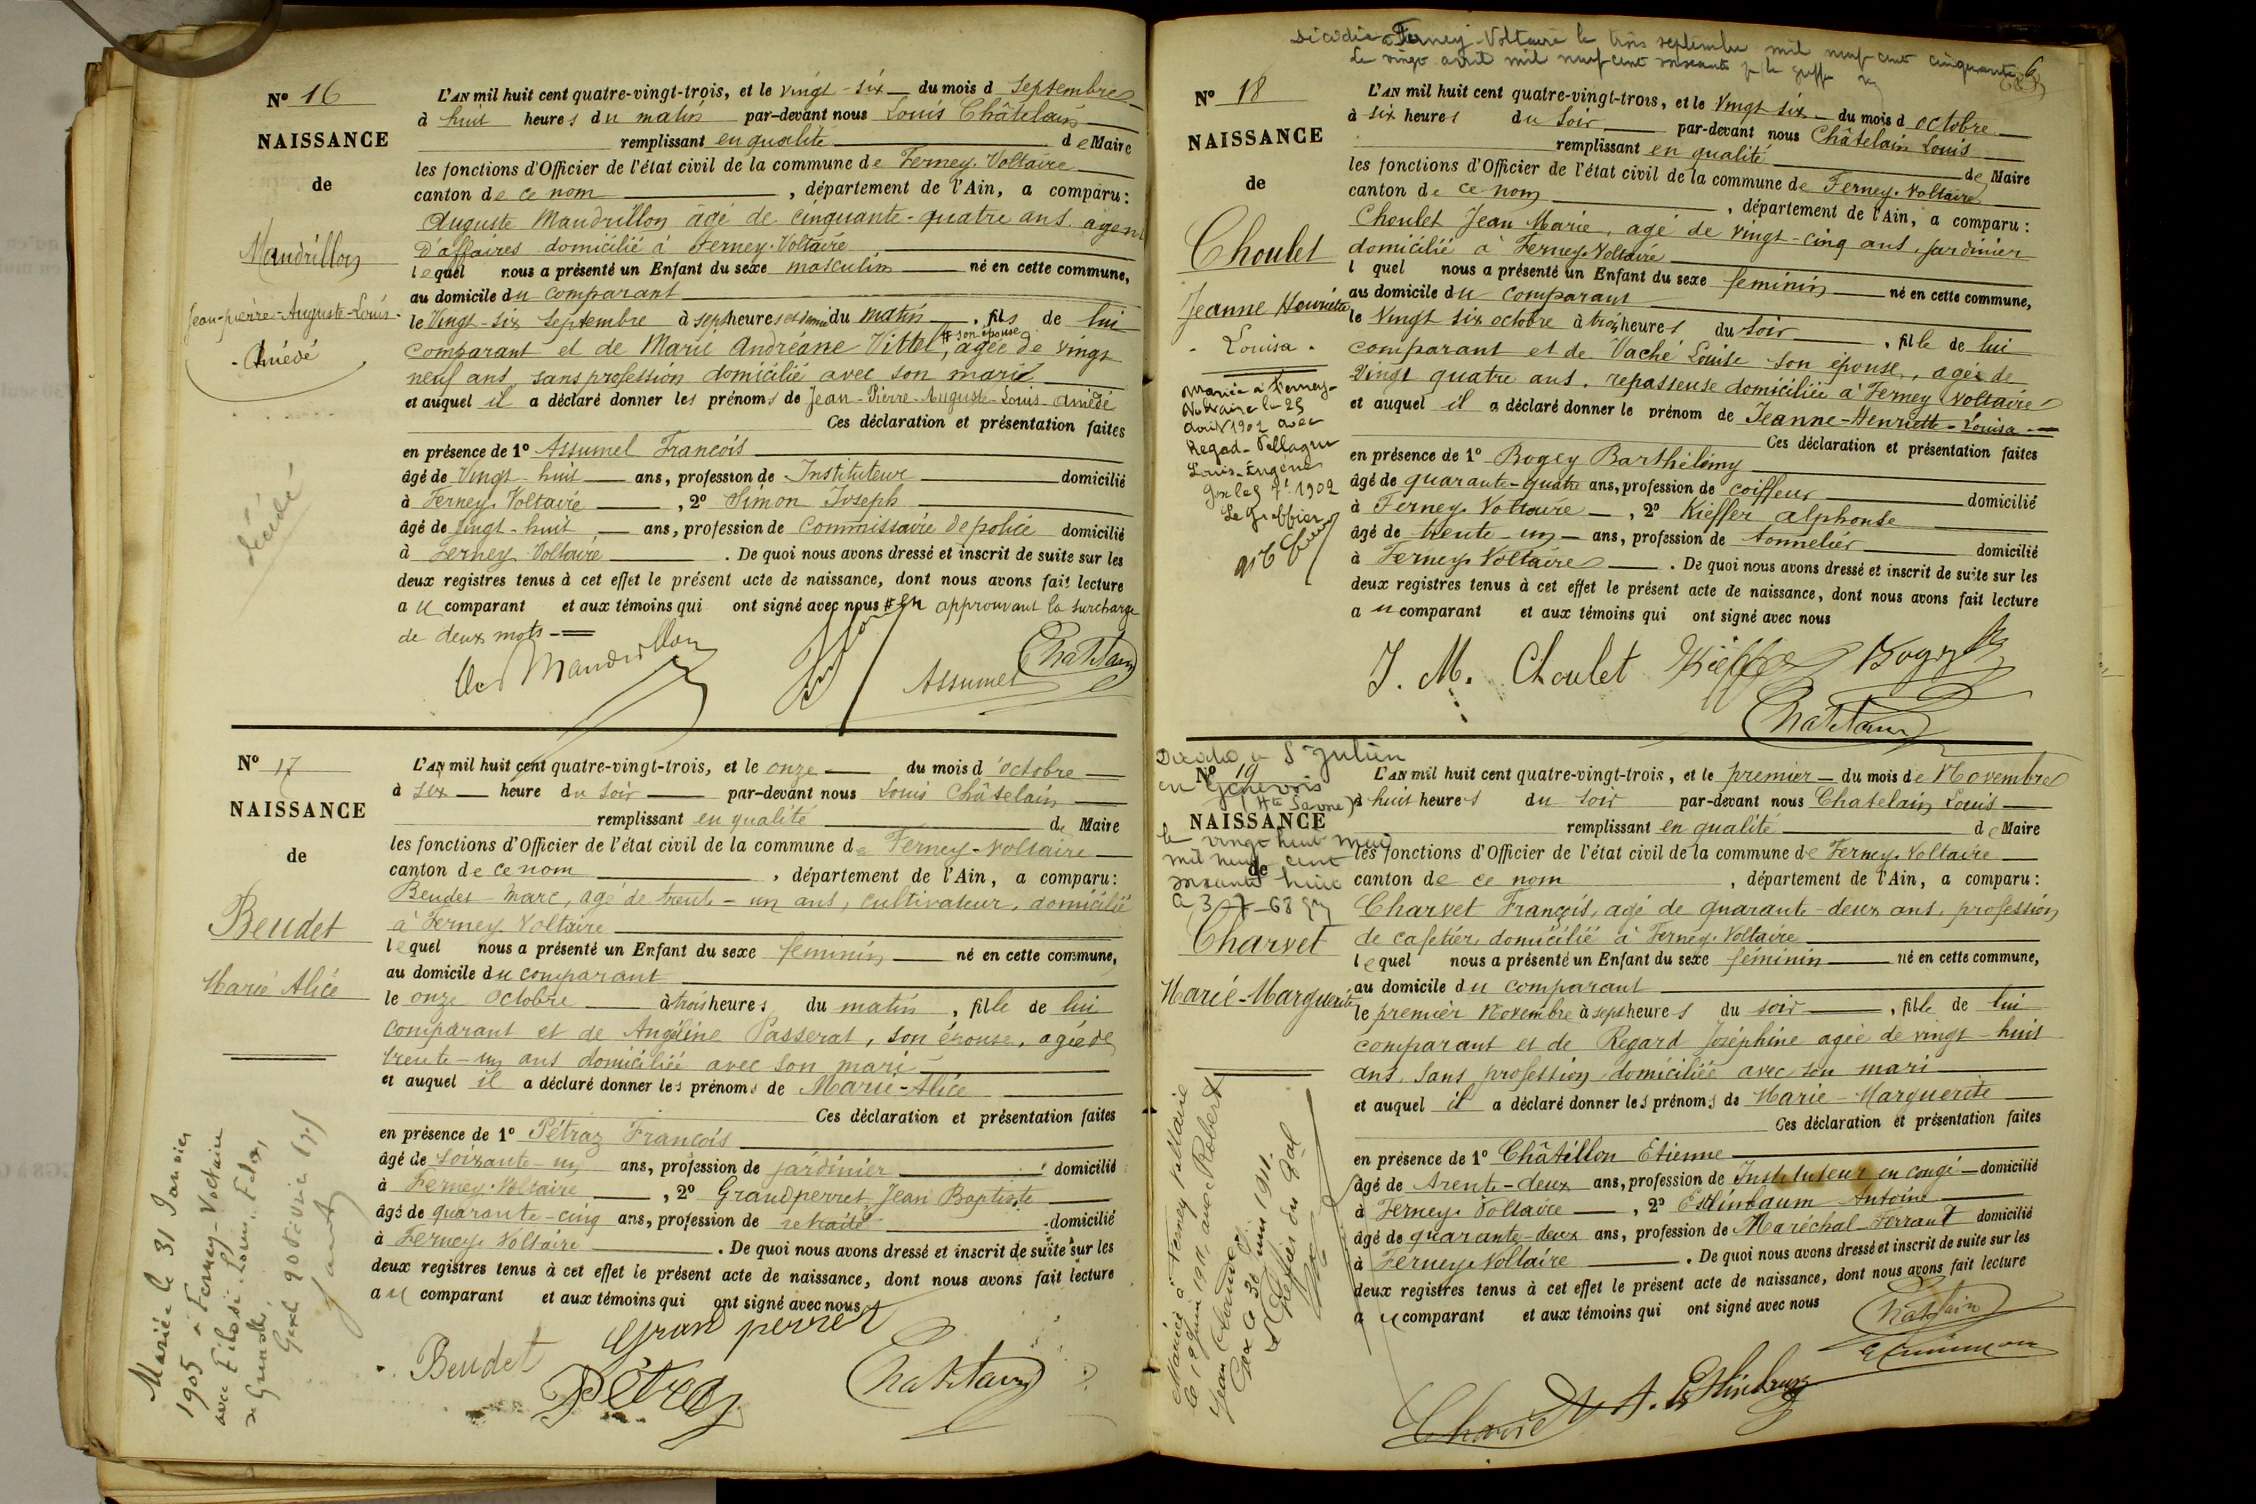 N° 16
NAISSANCE
de
Mandrillon
Jean-pierre-Auguste-Louis-
- Amédé
décédé
L'AN mil huit cent quatre-vingt-trois, et le vingt-six du mois d septembre
à huit heures du matin par-devant nous Louis Châtelain
remplissant en qualité de Maire
les fonctions d'Officier de l'état civil de la commune de Ferney-Voltaire
canton de ce nom , département de l'Ain, a comparu :
Auguste Mandrillon âgé de cinquante-quatre ans. agent
d'affaires domicilié à Ferney-Voltaire
lequel nous a présenté un Enfant du sexe masculin né en cette commune,
au domicile du comparant
le Vingt-six septembre à sept heures et demie du matin , fils de lui
comparant et de Marie Andréane Vittel, # son épouse âgée de vingt
neuf ans sans profession domicilié avec son marié
et auquel il a déclaré donner les prénoms de Jean-Pierre-Auguste-Louis-Amédé
Ces déclaration et présentation faites
en présence de 1° Assumel François
âgé de vingt-huit ans, profession de Instituteur domicilié
à Ferney-Voltaire , 2° Simon Joseph
âgé de vingt-huit ans, profession de commissaire de police domicilié
à Ferney Voltaire . De quoi nous avons dressé et inscrit de suite sur les
deux registres tenus à cet effet le présent acte de naissance, dont nous avons fait lecture
au comparant et aux témoins qui ont signé avec nous # en approuvant la surcharge
de deux mots
Mandrillon
Assumel
Châtelain
N° 17
NAISSANCE
de
Beudet
Marie Alice
Mariée le 31 Janvier
1905 à Ferney-Voltaire
L'AN mil huit cent quatre-vingt-trois, et le onze du mois d'octobre
à six heure du soir par-devant nous Louis Châtelain
remplissant en qualité de Maire
les fonctions d'Officier de l'état civil de la commune de Ferney-Voltaire
canton de ce nom , département de l'Ain, a comparu :
Beudet Marc, âgé de trente-un ans, cultivateur, domicilié
à Ferney Voltaire
lequel nous a présenté un Enfant du sexe féminin né en cette commune,
au domicile du comparant
le onze octobre à trois heures du matin , fille de lui
comparant et de Angéline Passerat, son épouse, agée de
trente-un ans domiciliée avec son mari
et auquel il a déclaré donner les prénoms de Marie-Alice
Ces déclaration et présentation faites
en présence de 1° Pétraz François
âgé de soixante-un ans, profession de jardinier domicilié
à Ferney-Voltaire , 2° Grandperret Jean Baptiste
âgé de quarante-cinq ans, profession de retraité domicilié
à Ferney-Voltaire . De quoi nous avons dressé et inscrit de suite sur les
deux registres tenus à cet effet le présent acte de naissance, dont nous avons fait lecture
au comparant et aux témoins qui ont signé avec nous
Grandperret
Beudet
Pétraz
Châtelain
décédée à Ferney-Voltaire le trois septembre mil neuf cent cinquante
6
N° 18
NAISSANCE
de
Choulet
Jeanne Henriette
- Louisa -
Mariée à Ferney-
Voltaire le 25
Août 1902 avec
Regad-Pellagru
Louis-Eugène
1902
Le Greffier
L'AN mil huit cent quatre-vingt-trois, et le vingt six du mois d octobre
à six heures du soir par-devant nous Châtelain Louis
remplissant en qualité de Maire
les fonctions d'Officier de l'état civil de la commune de Ferney-Voltaire
canton de ce nom , département de l'Ain, a comparu :
Choulet Jean Marie, agé de vingt-cinq ans, jardinier
domicilié à Ferney-Voltaire
l quel nous a présenté un Enfant du sexe féminin né en cette commune,
au domicile du comparant
le vingt six octobre à trois heures du soir , fille de lui
comparant et de Vaché Louise son épouse, agée de
vingt quatre ans, repasseuse domiciliée à Ferney Voltaire
et auquel il a déclaré donner le prénom de Jeanne-Henriette-Louisa
Ces déclaration et présentation faites
en présence de 1° Bogey Barthélémy
âgé de quarante-quatre ans, profession de coiffeur domicilié
à Ferney-Voltaire , 2° Kieffer alphonse
âgé de trente-un ans, profession de tonnelier domicilié
à Ferney Voltaire . De quoi nous avons dressé et inscrit de suite sur les
deux registres tenus à cet effet le présent acte de naissance, dont nous avons fait lecture
au comparant et aux témoins qui ont signé avec nous
J. M. Choulet Kieffer Bogey
Châtelain
Décédée à St Julien
en Genevois
(Hte Savoie)
le vingt huit
mil neuf cent
soixante huit
N° 19
NAISSANCE
de
Charvet
Marie-Marguerite
Mariée à Ferney Voltaire
le 1er Juin 1911, avec Robert
L'AN mil huit cent quatre-vingt-trois, et le premier du mois de Novembre
à huit heures du soir par-devant nous Chatelain Louis
remplissant en qualité de Maire
les fonctions d'Officier de l'état civil de la commune de Ferney-Voltaire
canton de ce nom , département de l'Ain, a comparu :
Charvet François, agé de quarante-deux ans, profession
de cafetier, domicilié à Ferney-Voltaire
lequel nous a présenté un Enfant du sexe féminin né en cette commune,
au domicile du comparant
le premier Novembre à sept heures du soir , fille de lui
comparant et de Regard Joséphine agée de vingt-huit
ans, sans profession domiciliée avec son mari
et auquel il a déclaré donner les prénoms de Marie-Marguerite
Ces déclaration et présentation faites
en présence de 1° Châtillon Etienne
âgé de trente-deux ans, profession de Instituteur en congé domicilié
à Ferney-Voltaire , 2° Eslimbaum Antoine
âgé de quarante-deux ans, profession de Maréchal-Ferrant domicilié
à Ferney-Voltaire . De quoi nous avons dressé et inscrit de suite sur les
deux registres tenus à cet effet le présent acte de naissance, dont nous avons fait lecture
au comparant et aux témoins qui ont signé avec nous
Châtelain